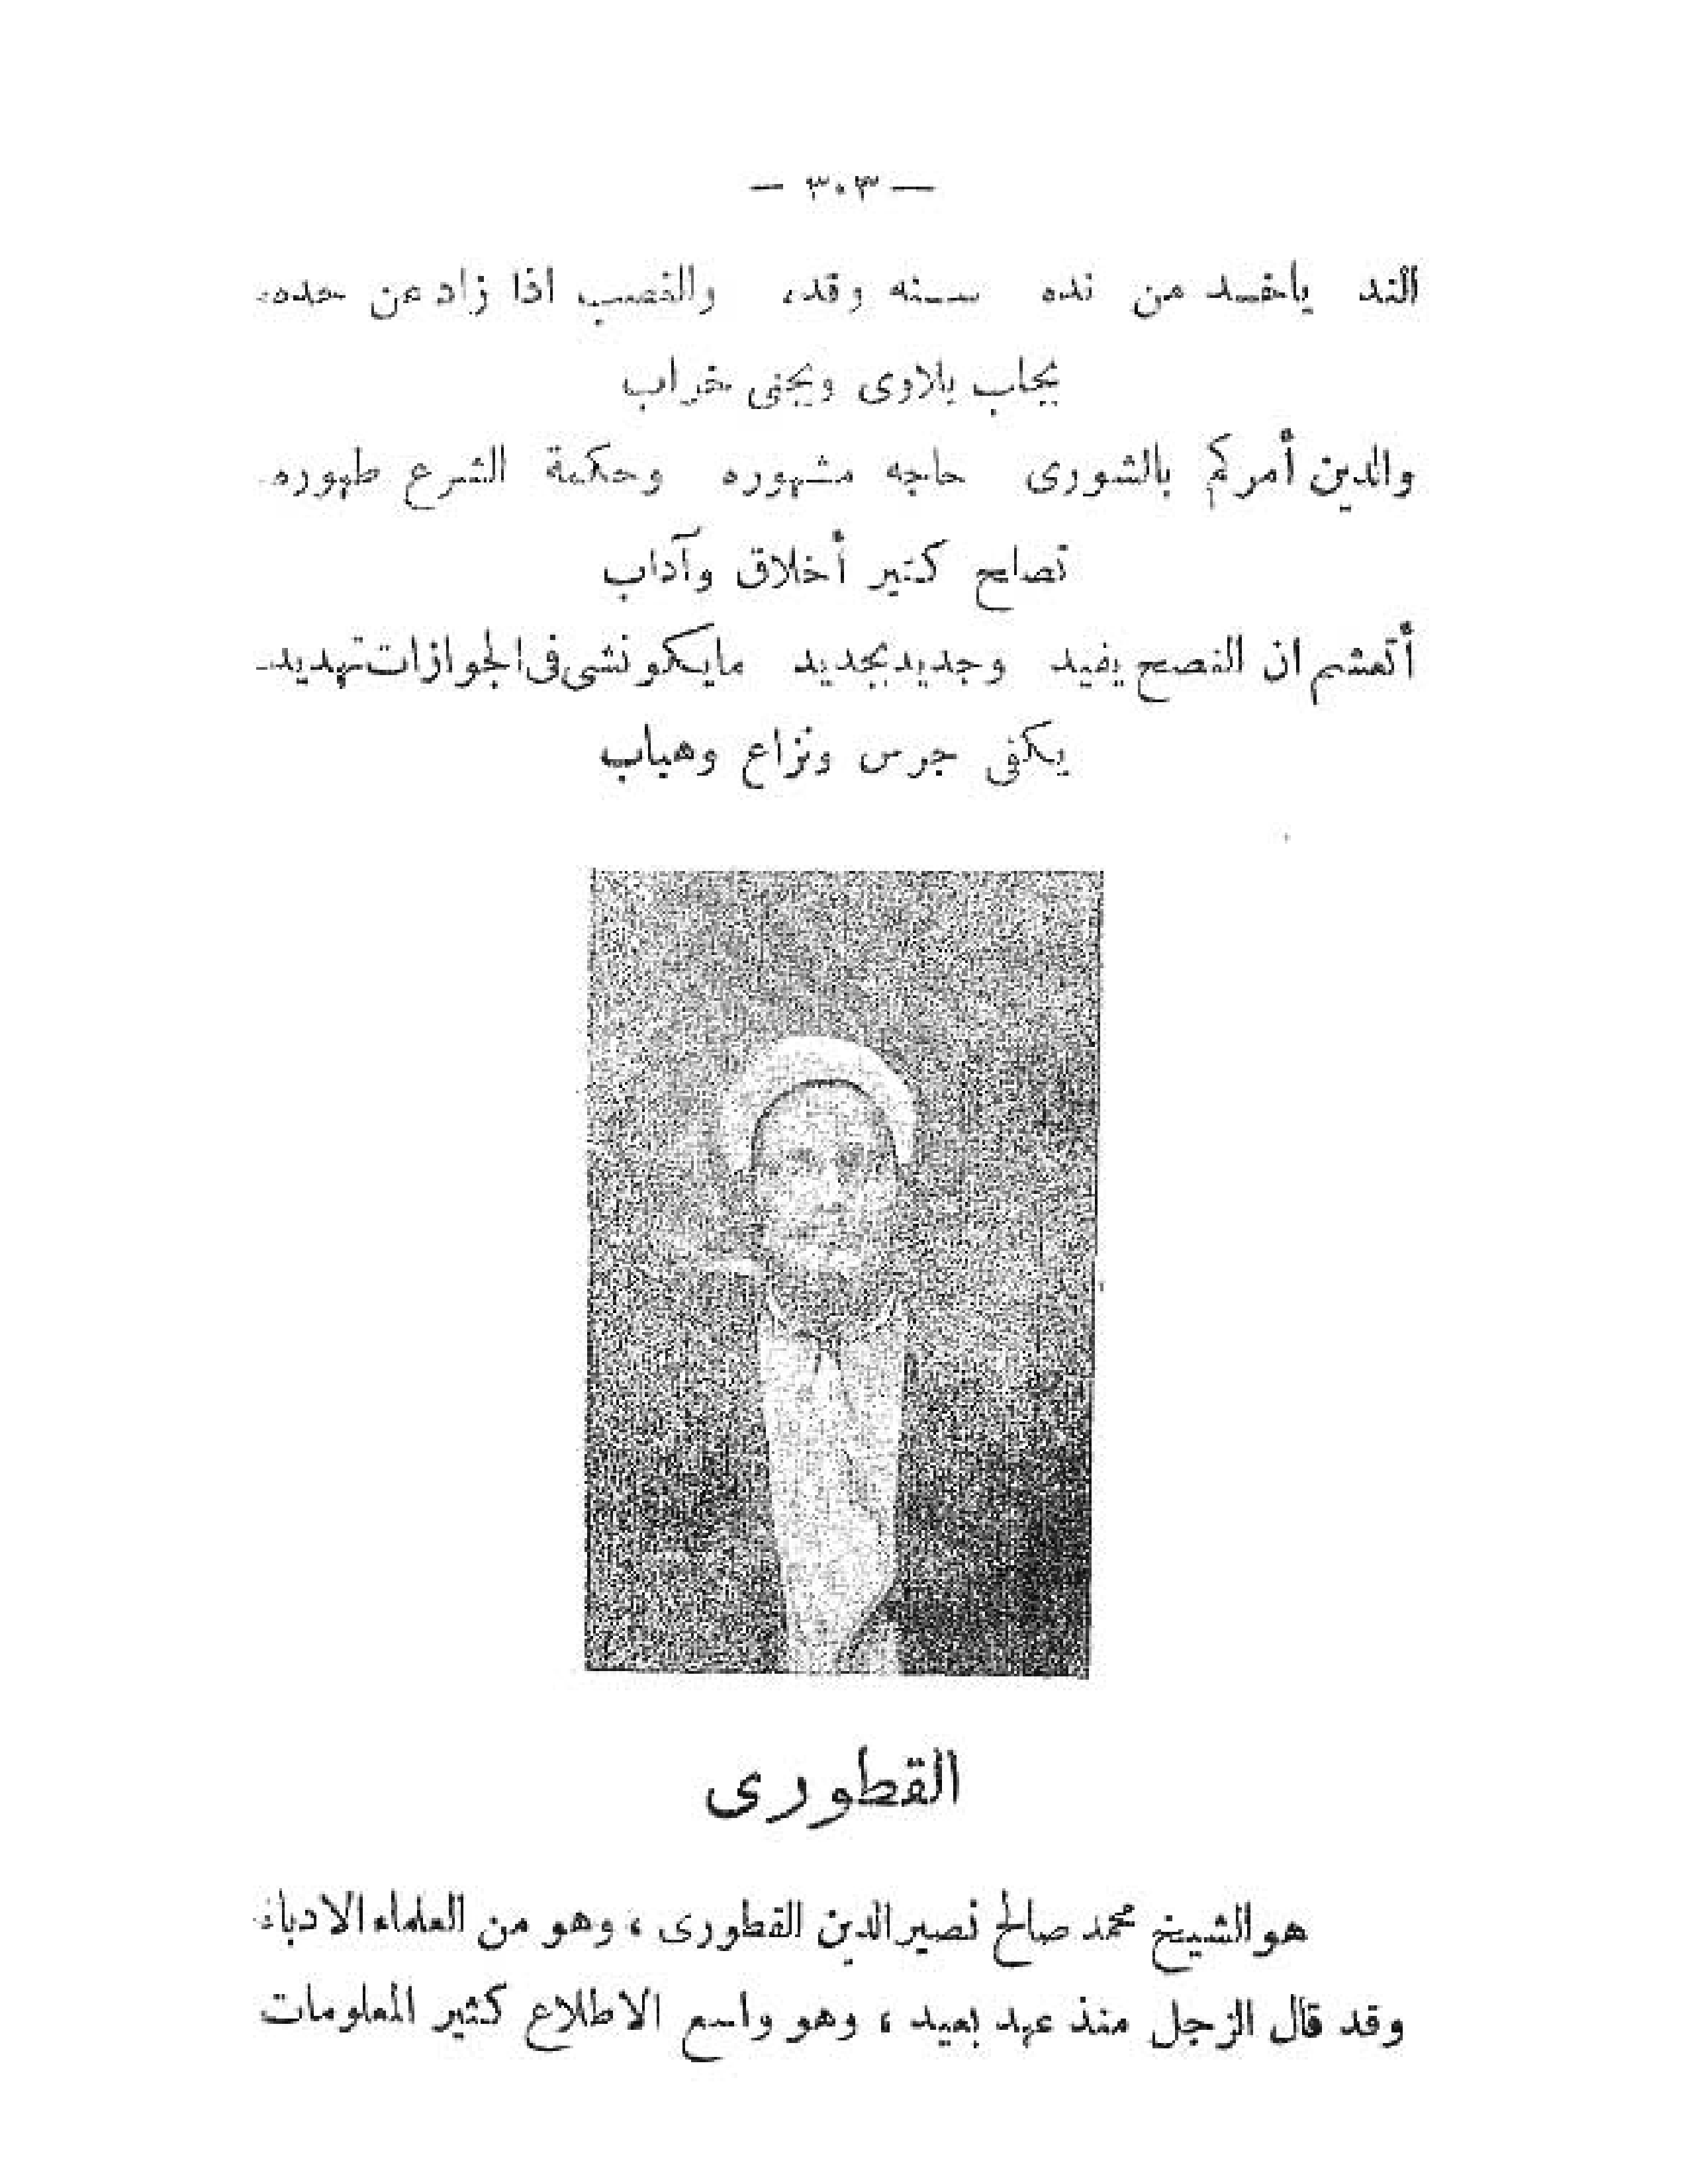 — ٣٠٣ —
الند ياخد من نده سنه وقده والغصب اذا زاد عن حده
يجلب بلاوى ويجنى خراب
والدين أمركم بالشورى حاجه مشهوره وحكمة الشرع طهوره
تصلح كتير أخلاق وآداب
أتعشم ان النصح يفيد وجديد بجديد مايكونشى فى الجوازات تهديد
يكفى جرس ونزاع وهباب
القطورى
هو الشيخ محمد صالح نصير الدين القطورى ، وهو من العلماء الادباء
وقد قال الزجل منذ عهد بعيد ، وهو واسع الاطلاع كثير المعلومات